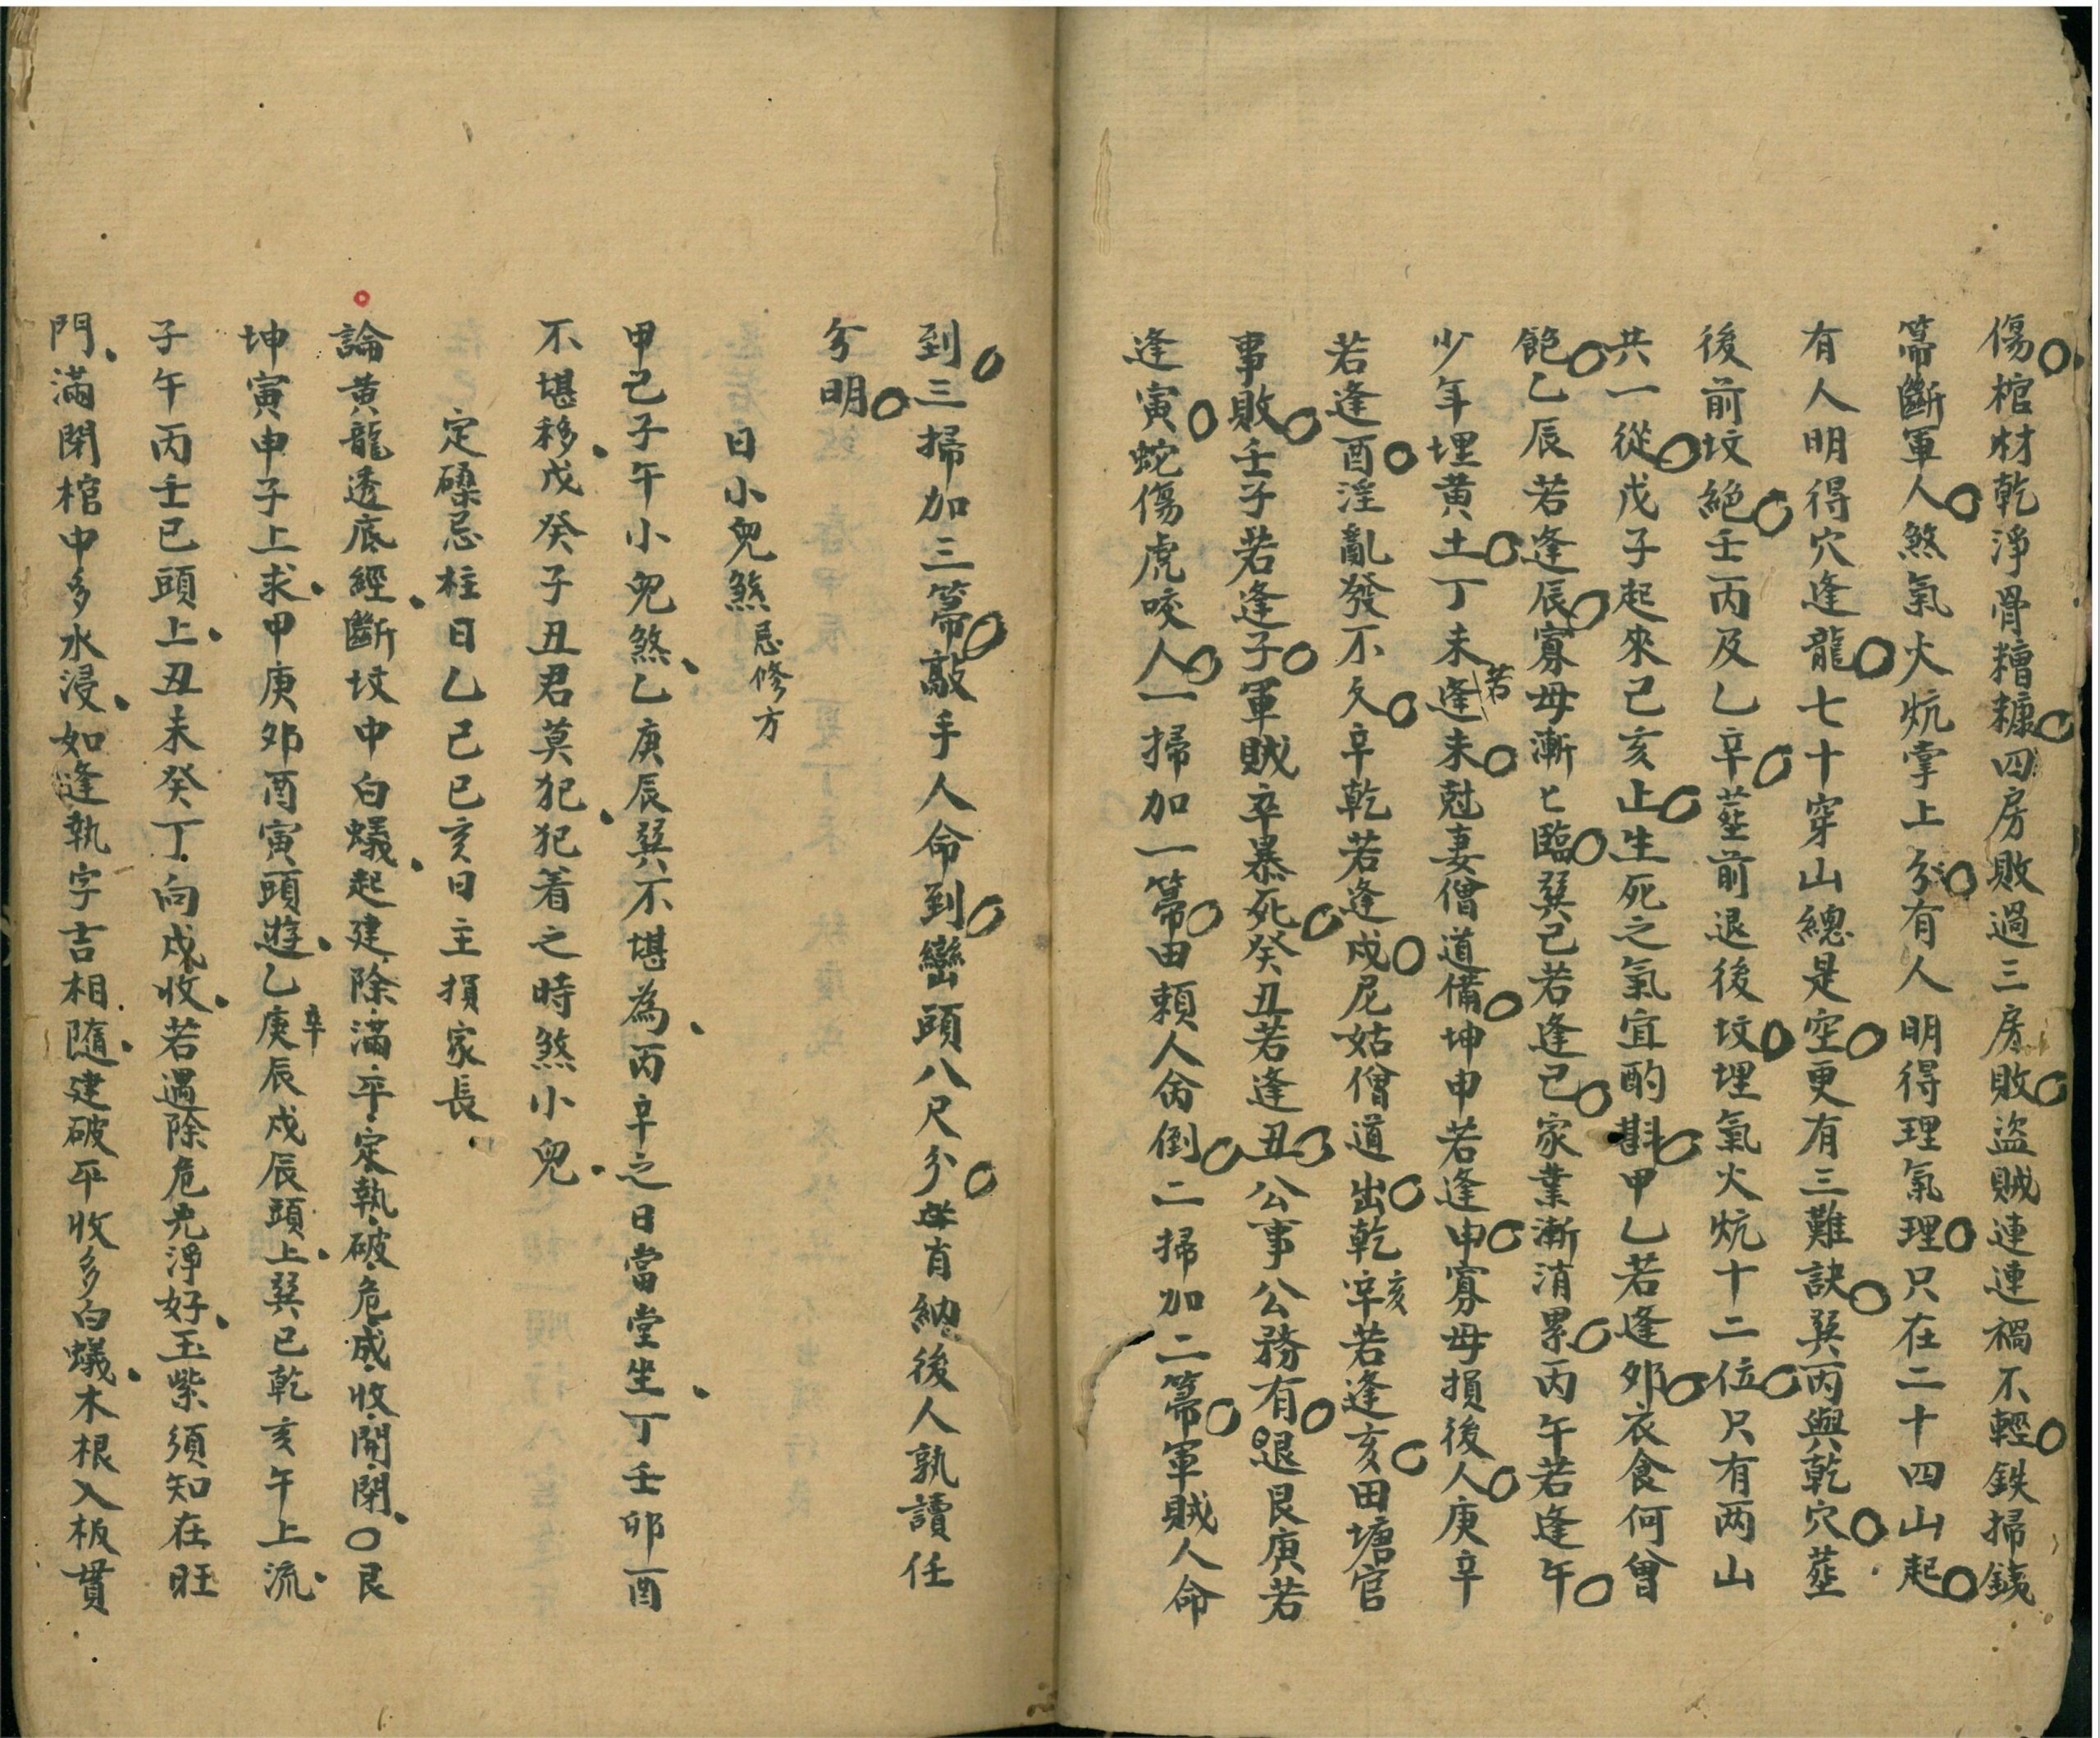 傷棺材乾淨骨糟糠四房敗過三房敗盜賊連連禍不輕鉄掃鉄
箒斷軍人煞氣火炕掌上分有人明得理氣理只在二十四山起
有人明得穴逢龍七十穿山總是空更有三難訣巽丙與乾穴塟
後前坟絕壬丙及乙辛塟前退後坟埋氣火炕十二位只有两山
共一從戊子起來己亥止生死之氣宜酌斟甲乙若逢夘衣食何曾
飽乙辰若逢辰寡母漸匕臨巽己若逢己家業漸消累丙午若逢午
少年埋黃土丁未若逢未尅妻僧道備坤申若逢申寡母損後人庚辛
若逢酉淫亂發不久辛乾若逢戍尼姑僧道出乾亥若逢亥田塘官
事敗壬子若逢子軍賊卒暴死癸丑若逢丑公事公務有退艮寅若
逢寅蛇傷虎咬人一掃加一箒由賴人命倒二掃加二箒軍賊人命
到三掃加三箒敲手人命到巒頭八尺分肖納後人孰讀任
分明
日小兒煞忌修方
甲己子午小兒煞乙庚辰巽不堪為丙辛之日當堂坐丁壬卯酉
不堪移戊癸子丑君莫犯犯着之時煞小兒
定磉忌柱日乙巳己亥日主損家長
論黃龍透底經斷坟中白蟻起建除滿平定執破危成收開閉○艮
坤寅申子上求甲庚夘酉寅頭遊乙辛庚辰戍辰頭上巽巳乾亥午上流
子午丙壬巳頭上丑未癸丁向戍收若遇除危尤淨好玉紫須知在旺
門滿閉棺中多水浸如逢執字吉相隨建破平收多白蟻木根入板貫